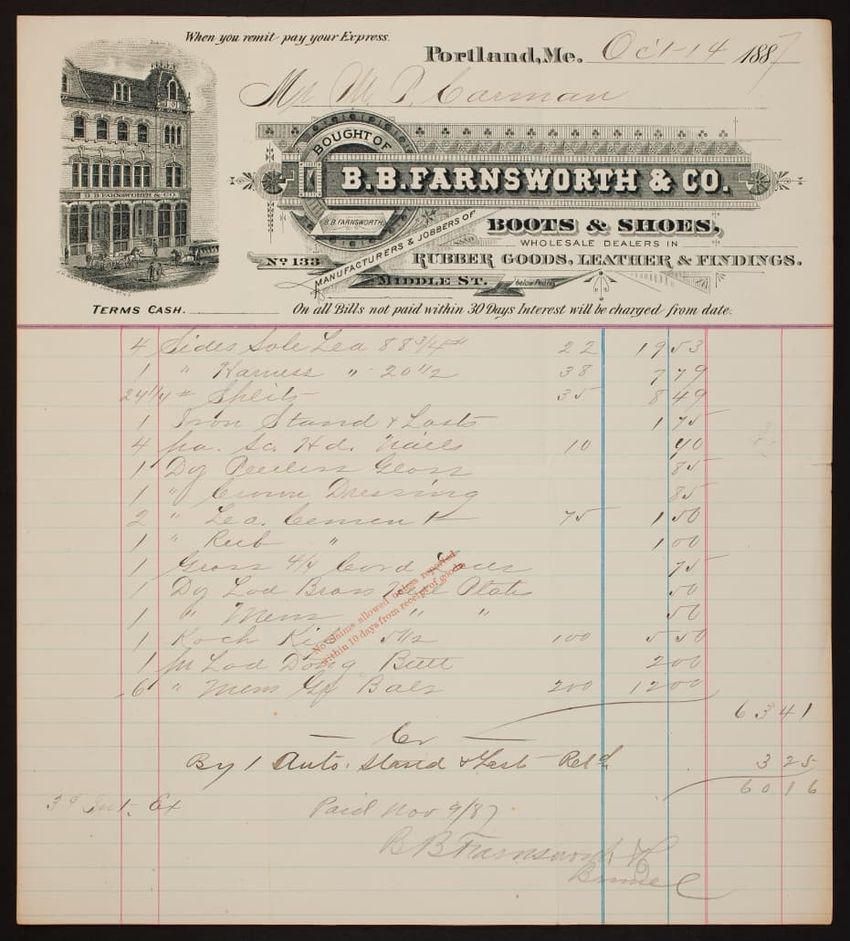 When you remit pay your Express.
Portland, Me. Oct 14 1887
Mr M. P. Carman
BOUGHT OF
B. B. FARNSWORTH & CO.
B. B. FARNSWORTH & CO.
B. B. FARNSWORTH
MANUFACTURERS & JOBBERS OF
BOOTS & SHOES,
AND
WHOLESALE DEALERS IN
RUBBER GOODS, LEATHER & FINDINGS.
No 133
MIDDLE ST.
below Pearl
TERMS CASH.
On all Bills not paid within 30 Days Interest will be charged from date.
4 Sides Sole Lea 88 3/4 # 22 19 53
1 " Harness " 20 1/2 38 7 79
24 1/4 # Splits 35 8 49
1 Iron Stand & Lasts 1 75
4 Hd. Nails 10 40
1 Dz Peerless Gloss 85
1 " Crown Dressing 85
2 " Lea. Cement 75 1 50
1 " Rub " 1 00
1 Gross 4/4 Cord Laces 75
1 Dz Lad Brass Heel Plate 50
1 " Mens " " 50
1 Koch Kip 5 1/2 100 5 50
1 pr Lad Dong Butt 2 00
6 " Mens Bals 200 12 00
63 41
No claims allowed unless reported
within 10 days from receipt of goods
Cr
By 1 Auto. Stand & Last Retd 3 25
60 16
Ex
Paid Nov 9/87
B B Farnsworth & Co